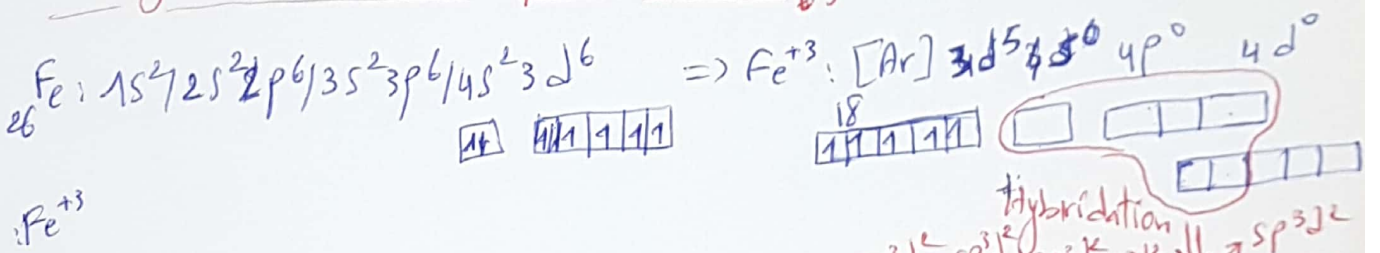 ₂₆Fe : 1s²/2s²2p⁶/3s²3p⁶/4s²3d⁶ => Fe⁺³ : [Ar] 3d⁵4s⁰ 4p⁰ 4d⁰
18
1↓ 1↓ 1 1 1 1 1 1 1 1 1
:Fe⁺³
Hybridation
sp³d²